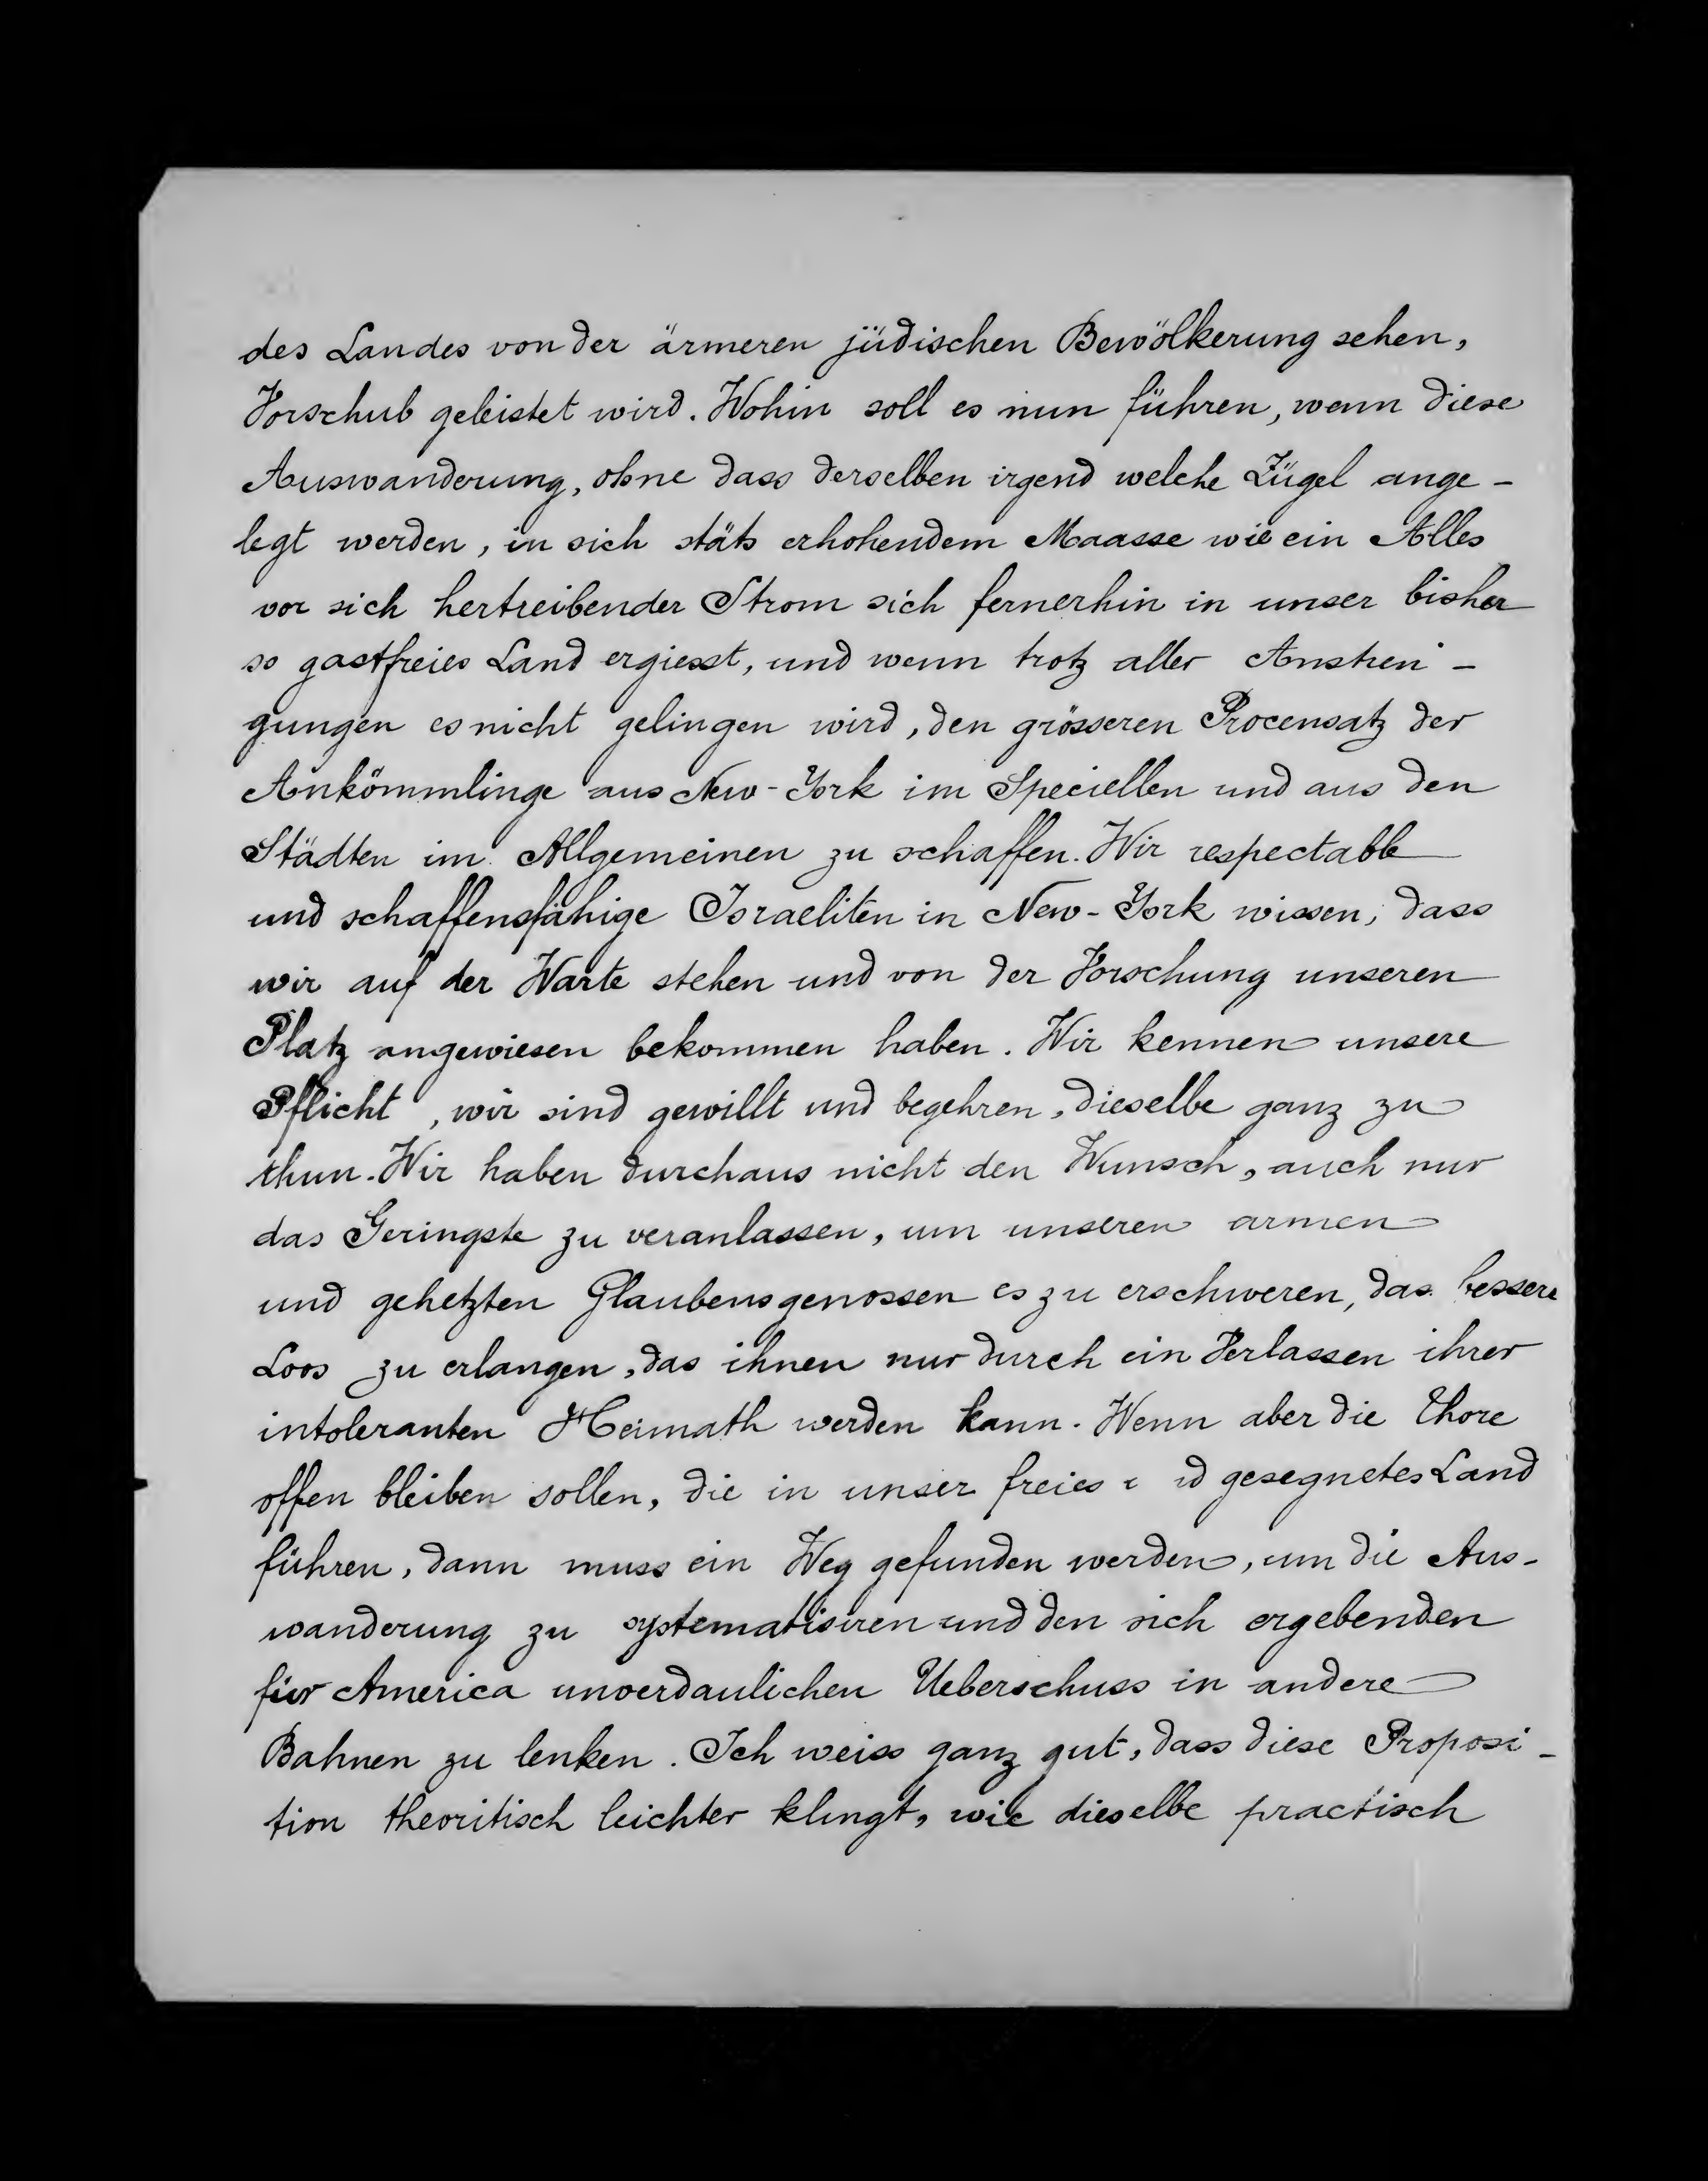 des Landes von der ärmeren jüdischen Bevölkerung sehen,
Vorschub geleistet wird. Wohin soll es nun führen, wenn diese
Auswanderung, ohne dass derselben irgend welche Zügel ange-
legt werden, in sich stäts erhohendem Maasse wie ein Alles
vor sich hertreibender Strom sich fernerhin in unser bisher
so gastfreies Land ergiesst, und wenn trotz aller Anstren-
gungen es nicht gelingen wird, den grösseren Procensatz der
Ankömmlinge aus New-York im Speciellen und aus den
Städten im Allgemeinen zu schaffen. Wir respectable
und schaffensfähige Israeliten in New-York wissen, dass
wir auf der Warte stehen und von der Vorschung unseren
Platz angewiesen bekommen haben. Wir kennen unsere
Pflicht, wir sind gewillt und begehren, dieselbe ganz zu
thun. Wir haben durchaus nicht den Wunsch, auch nur
das Geringste zu veranlassen, um unseren armen
und gehetzten Glaubensgenossen es zu erschweren, das bessere
Loos zu erlangen, das ihnen nur durch ein Verlassen ihrer
intoleranten Heimath werden kann. Wenn aber die Thore
offen bleiben sollen, die in unser freies gesegnetes Land
führen, dann muss ein Weg gefunden werden, um die Aus-
wanderung zu systematisiren und den sich ergebenden
für America unverdaulichen Ueberschuss in andere
Bahnen zu lenken. Ich weiss ganz gut, dass diese Proposi-
tion theoritisch leichter klingt, wie dieselbe practisch